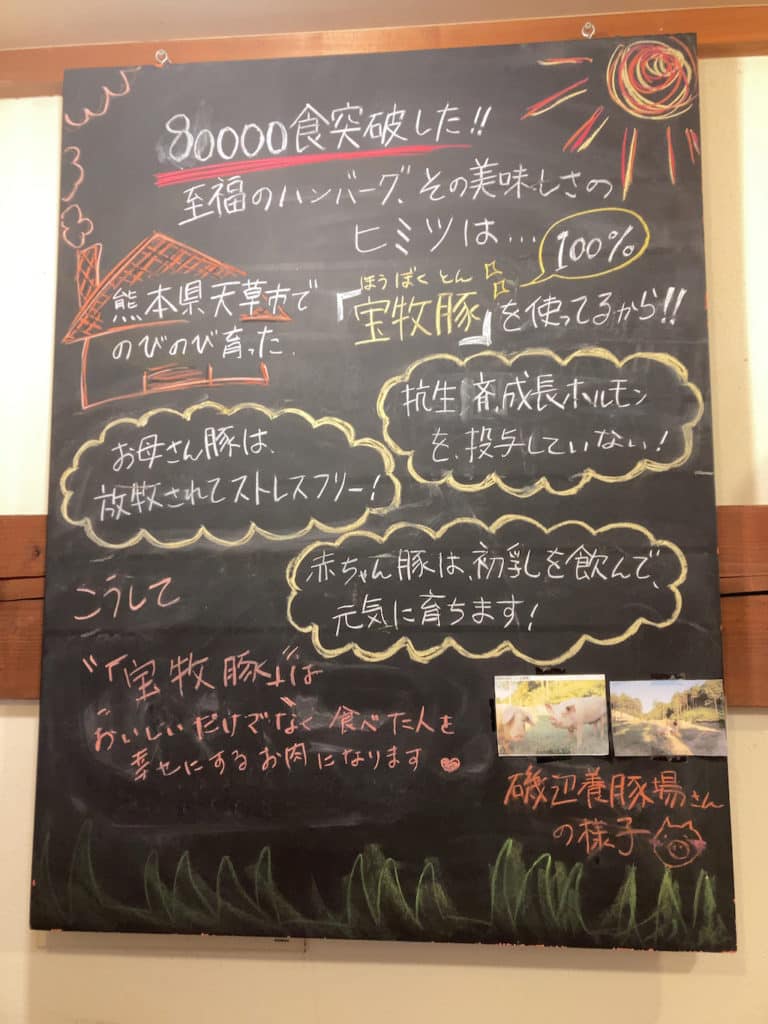 80000食突破した!!
至福のハンバーグ、その美味しさの
ヒミツは…
100%
熊本県天草市で
のびのび育った
ほうぼくとん
「宝牧豚」を使ってるから!!
抗生剤、成長ホルモン
を投与していない!
お母さん豚は、
放牧されてストレスフリー!
赤ちゃん豚は、初乳を飲んで、
元気に育ちます!
こうして
"「宝牧豚」"は
おいしいだけでなく 食べた人を
幸せにするお肉になります
磯辺養豚場さん
の様子